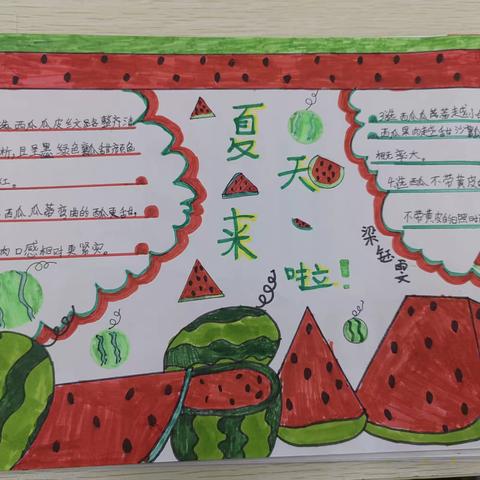 选西瓜瓜皮纹路整齐清
晰,且呈黑绿色瓤甜颜色
红。
西瓜瓜蒂弯曲的西瓜更甜,
肉口感相对更紧实。
夏天来啦!
3选西瓜瓜蒂越小
西瓜果肉越甜沙瓤
概率大。
4.选西瓜不带黄皮的
不带黄皮的日照时
梁钰雯